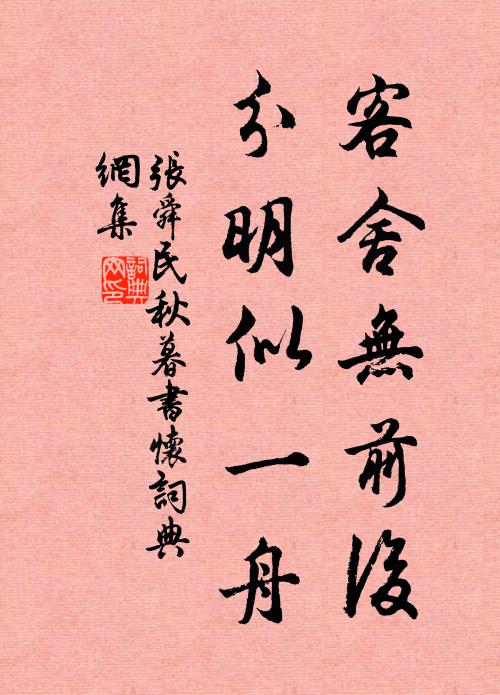 客舍無前後
分明似一舟
張舜民秋暮書懷詞典
網集
詞典
網印